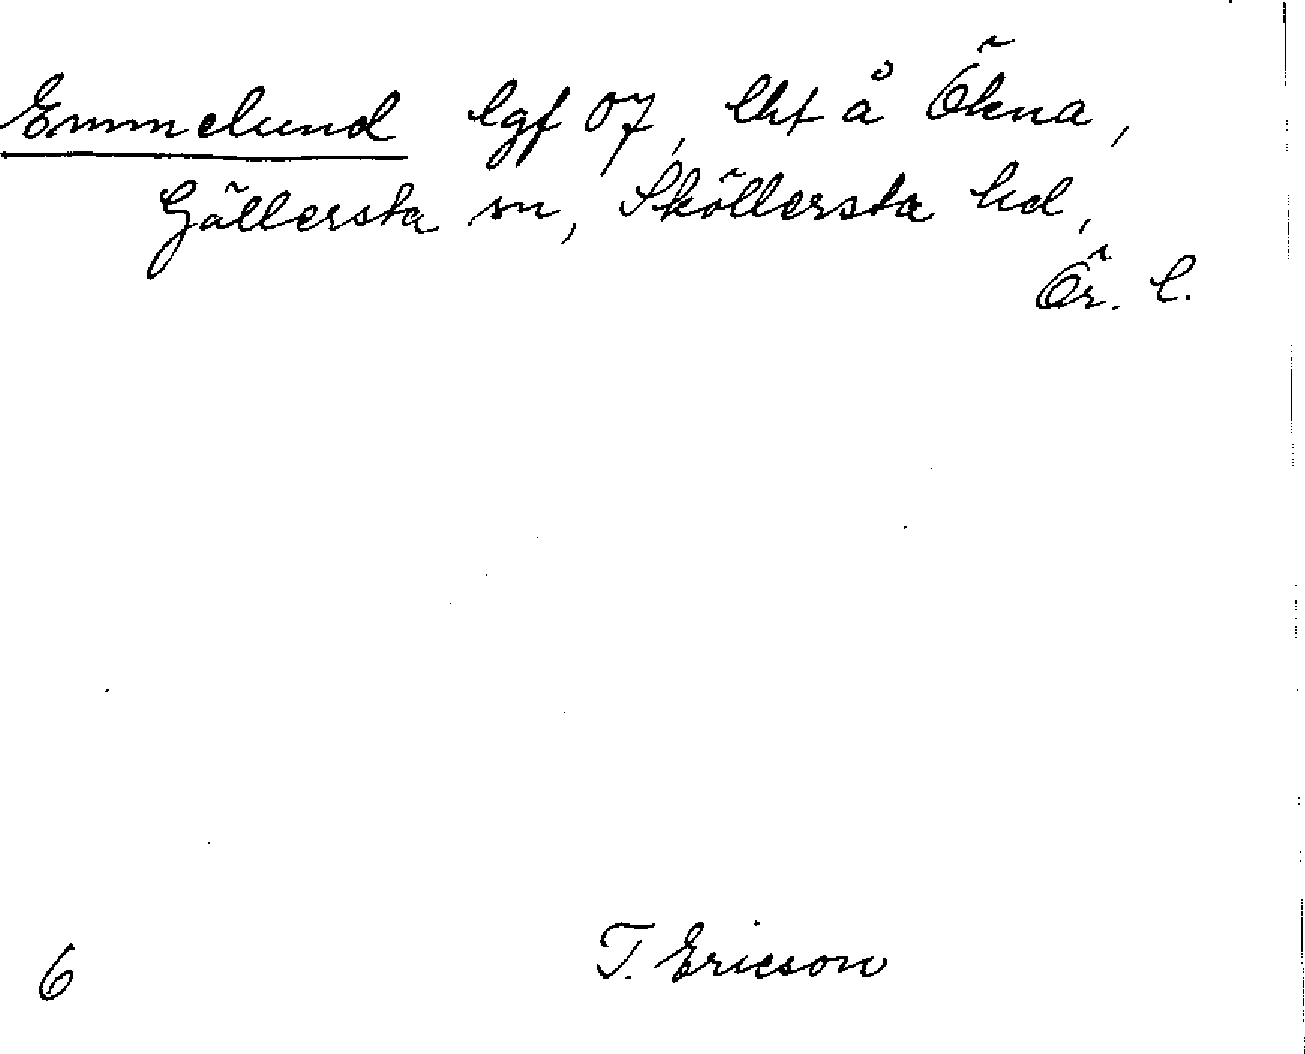 Emmelund lgf 07, lht å Ökna,
Gällersta sn, Sköllersta hd,
Ör. l.
6 T. Ericson